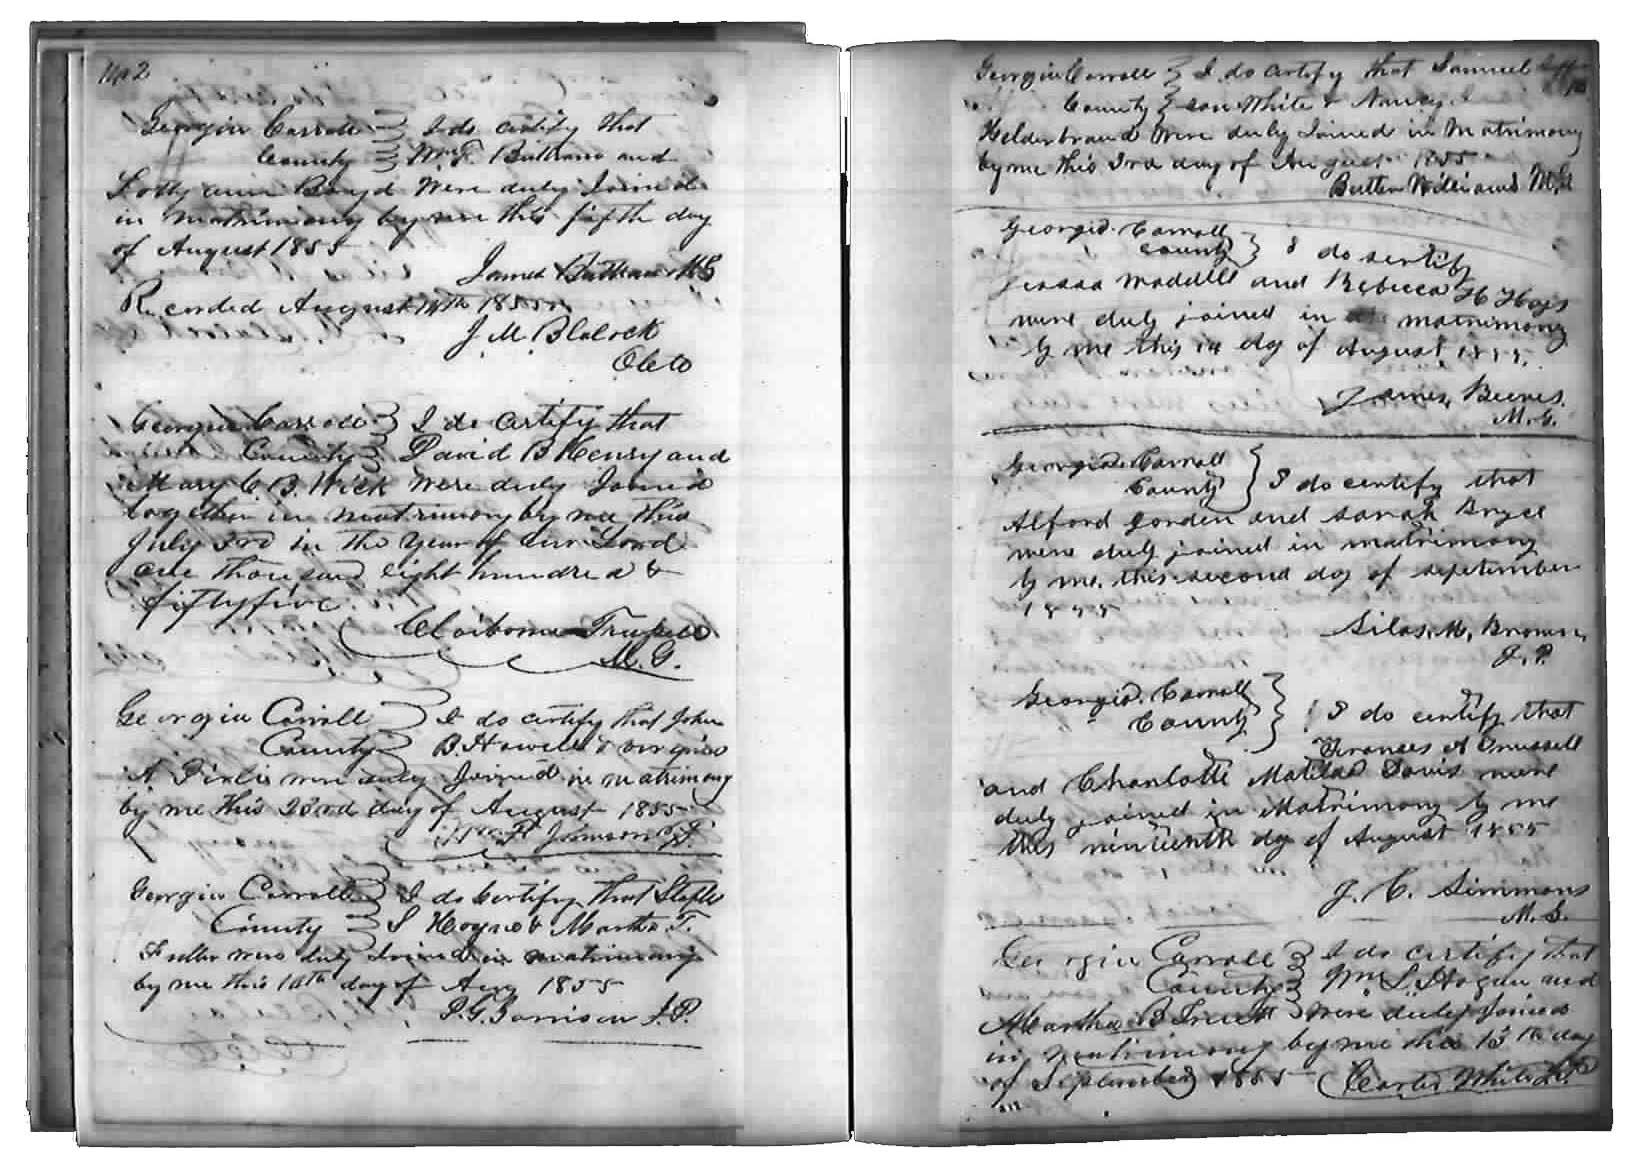 142
Georgia Carroll } I do certify that
County } Wm F. and
Lotty ann Boyd were duly Joined
in matrimony by me this fifth day
of August 1855
James M G
Recorded August 14th 1855
J. M. Blalock
Georgia Carroll } I do certify that
County } David B Henry and
Mary C B. Wick were duly Joined
together in matrimony by me this
July 3rd in the year of our Lord
one thousand eight hundred &
fiftyfive.
Claiborne
M. G.
Georgia Carroll } I do certify that John
County } B. Howell & Virginia
A were duly Joined in matrimony
by me this 23rd day of August 1855
Georgia Carroll } I do Certify that
County } S & Martha T.
Fuller were duly Joined in matrimony
by me this 10th day of Aug 1855
P. G. Garrison J. P.
Georgia Carroll } I do certify that Samuel
County } White & Nancy
Helderbrand were duly Joined in Matrimony
by me this 3rd day of August 1855
Williams M. G
Georgia. Carroll
County } I do sertify
waddell and Rebecca H Hays
were duly joined in matrimony
by me this 14 day of August 1855.
James, Reeves.
M. G.
Georgia. Carroll
County } I do certify that
Alford gorden and sarah Bryce
were duly joined in matrimony
by me. this second day of september
1855
Silas, M, Brown,
J. P.
Georgia. Carroll
County } I do certify that
Frances A
and Charlotte Matilda Davis were
duly joined in Matrimony by me
this ninteenth day of August 1855
J. C. Simmons
M. G.
Georgia Carroll } I do certify that
County } Wm. L. Hogue and
Martha B Truett were duly Joined
in matrimony by me this 13th day
of September 1855 Carter White